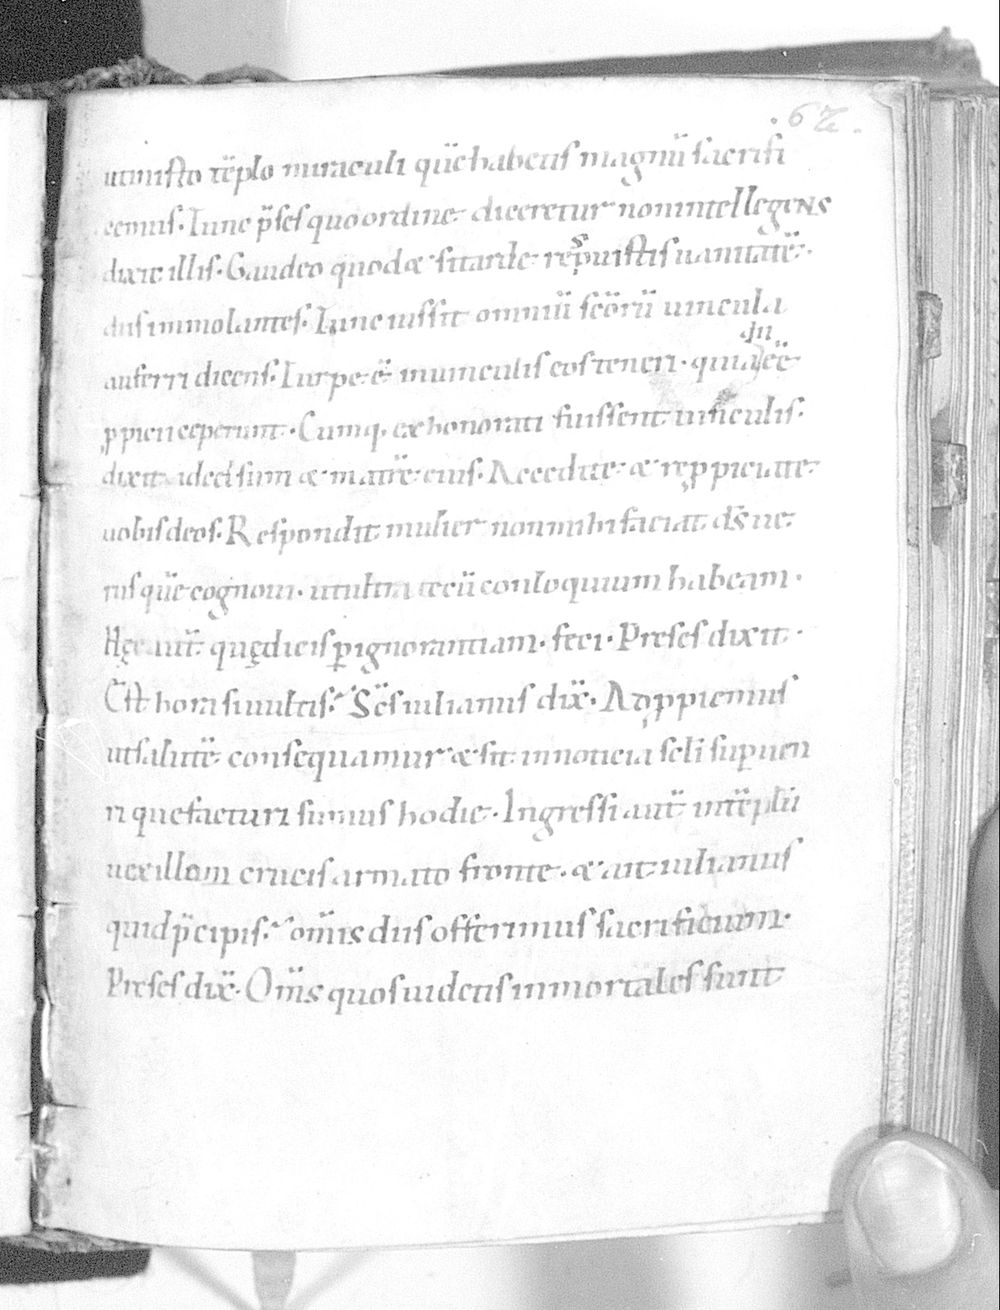 .62.
utinisto tẽplo miraculi quẽ habetis magnũ sacrifi
cemus. Tunc p̃ses quo ordine diceretur non intellegens
dixit illis. Gaudeo quod & si tarde rep̱puistis uanitatẽ.
diis immolantes. Tunc iussit omniũ sc̃orũ uincula
auferri dicens. Turpe ẽ in uinculis eos teneri. quia diu eẽ
p̱picii ceperunt. Cumq. exhonorati fuissent uinculis.
dixit ad celsum & matrẽ eius. Accedite & rep̱piciate
uobis deos. Respondit mulier non mihi faciat d̃s ue
rus quẽ cognoui. ut ultra tecũ conloquium habeam.
Hęc aut̃ quę dicis p̱ ignorantiam. feci. Preses dixit.
Est hora si uultis. Sc̃s iulianus dix̃. Adp̱piemus
ut salutẽ consequamur & sit in noticia sc̃li sup̱uen
ri que facturi sumus hodie. Ingressi aut̃ intẽplũ
uexillum crucis armato fronte. & ait iulianus
quid p̃cipis. om̃is diis offerimus sacrificium.
Preses dix̃. Om̃s quos uidetis inmortales sunt